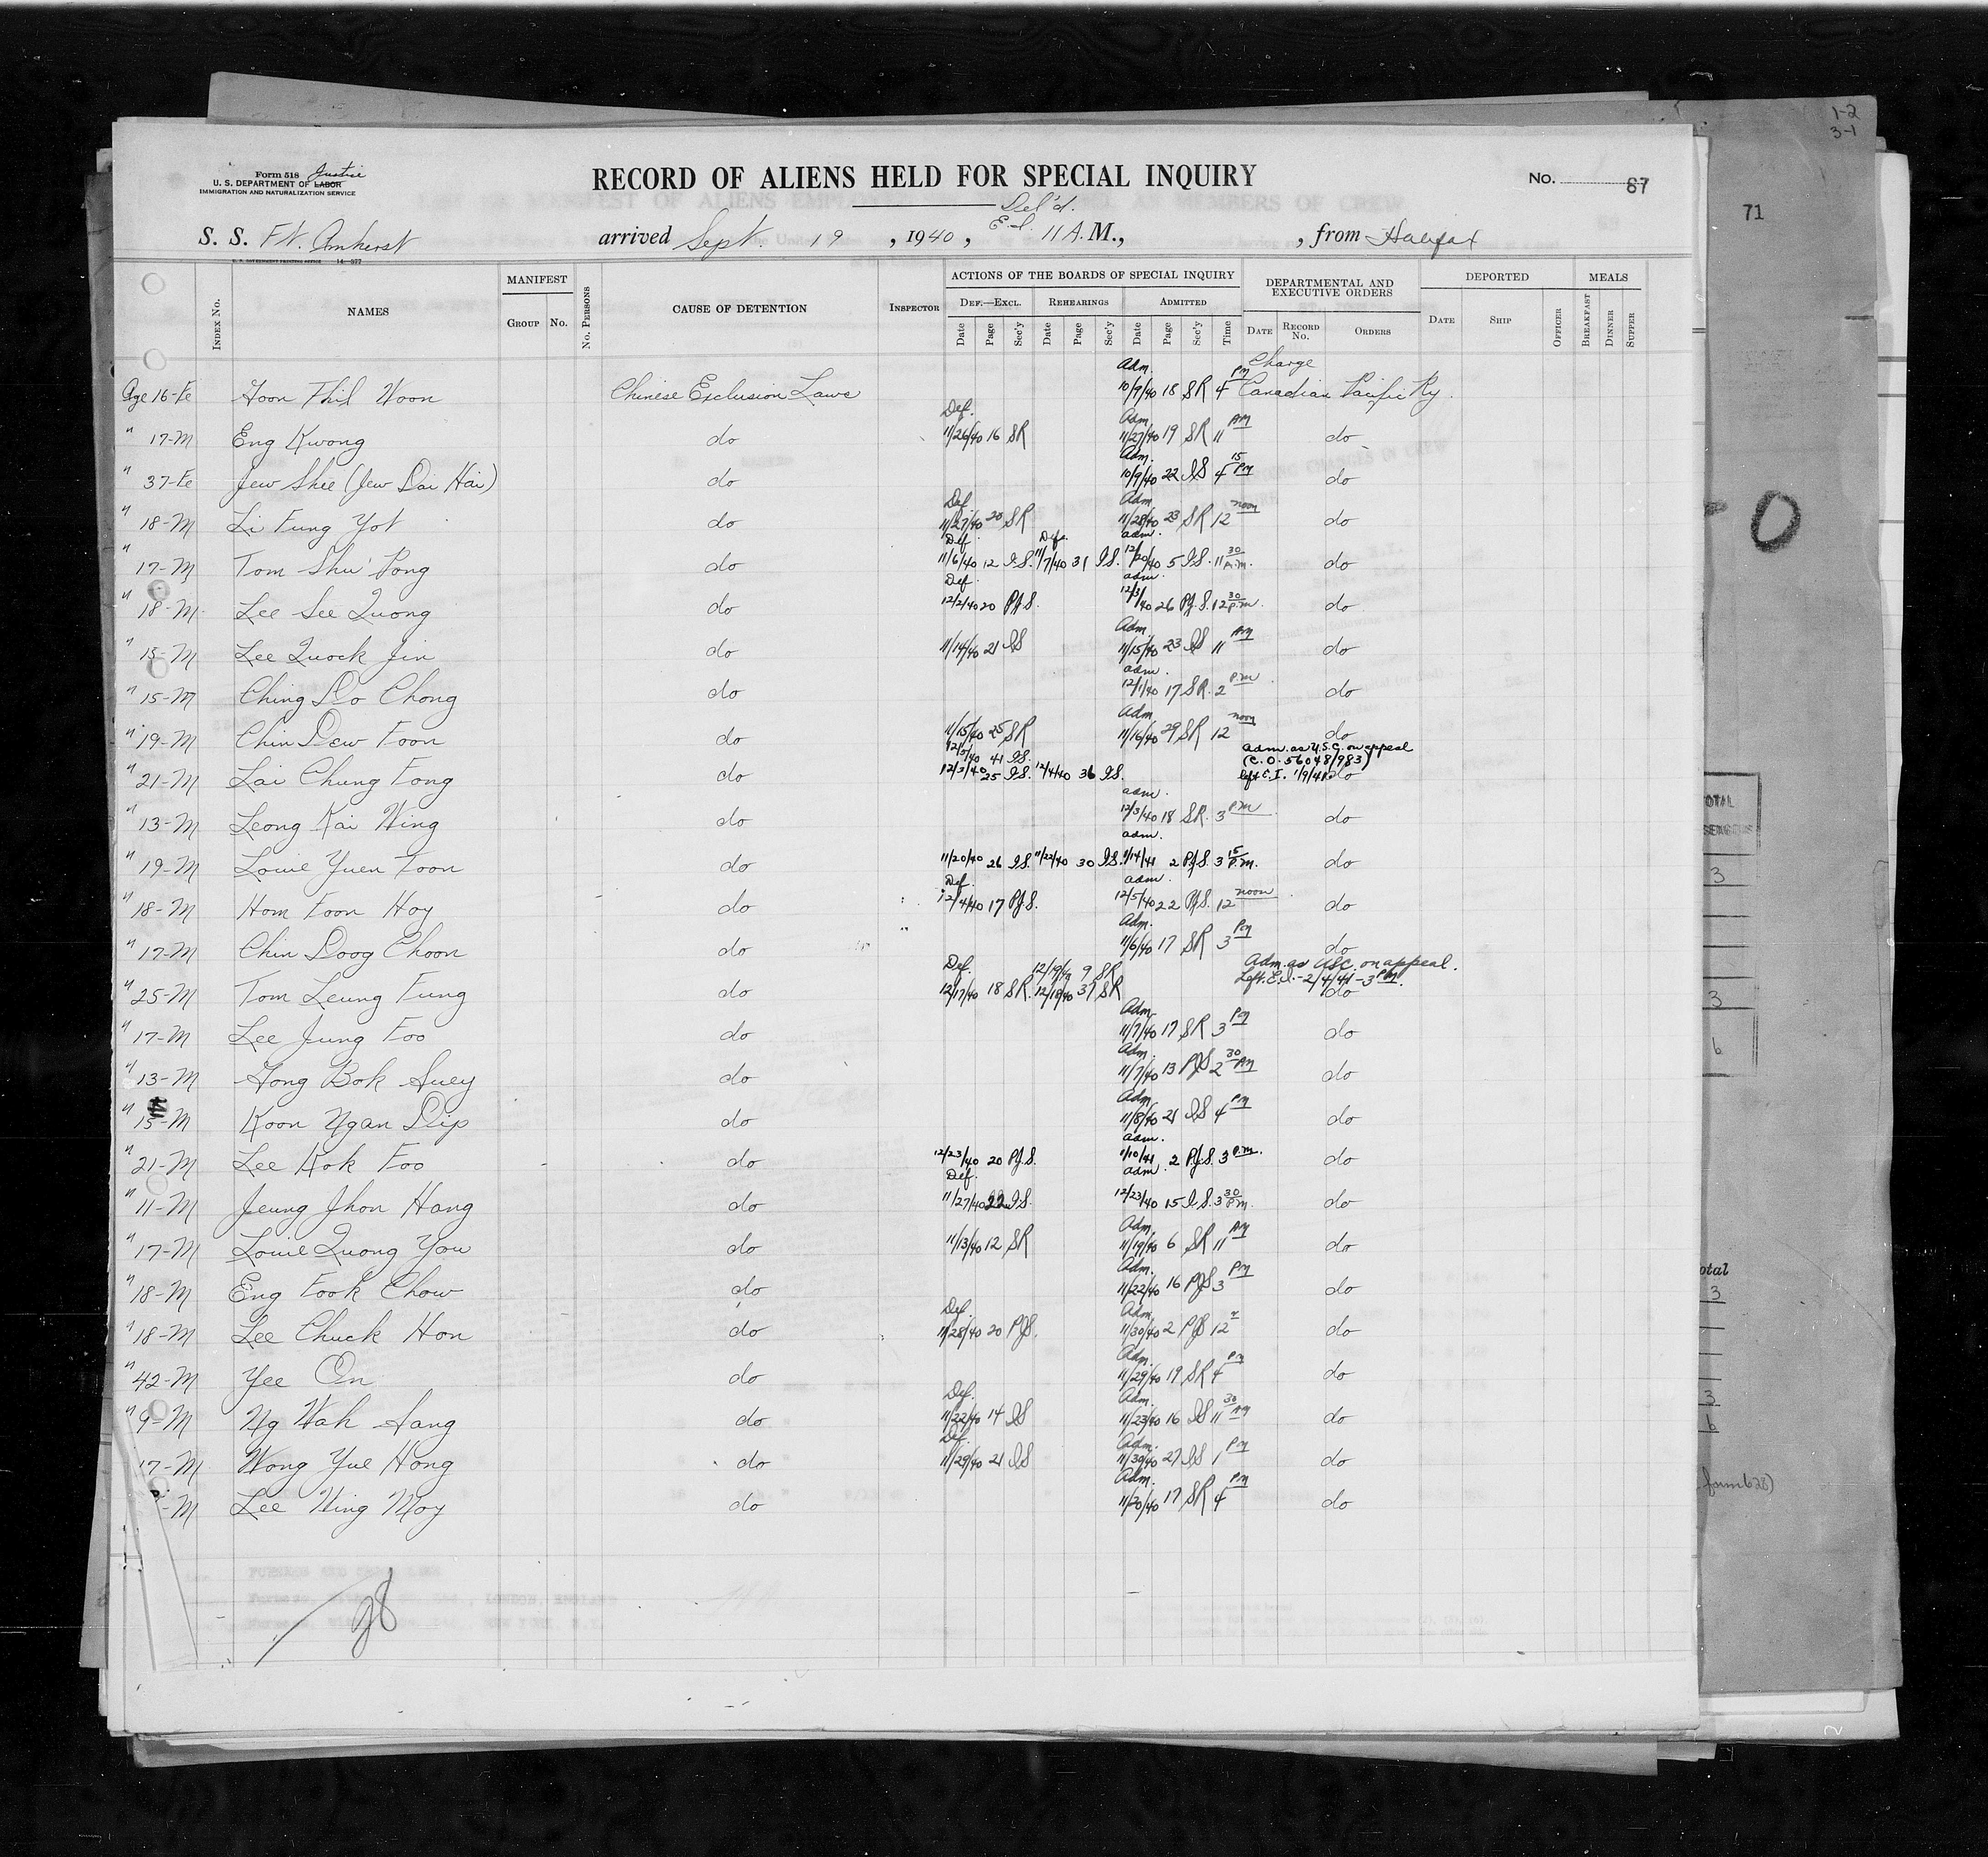 1-2
3-1
Form 518 Justice
U. S. DEPARTMENT OF LABOR
IMMIGRATION AND NATURALIZATION SERVICE
RECORD OF ALIENS HELD FOR SPECIAL INQUIRY
No. 67
71
Del'd.
S. S. Ft. Amherst arrived Sept. 19, 1940, E.I. 11 A.M., , from Halifax
U. S. GOVERNMENT PRINTING OFFICE 14-577
INDEX No. NAMES MANIFEST GROUP No. No. PERSONS CAUSE OF DETENTION INSPECTOR ACTIONS OF THE BOARDS OF SPECIAL INQUIRY DEPARTMENTAL AND EXECUTIVE ORDERS DEPORTED MEALS
DEF.—EXCL. REHEARINGS ADMITTED
Date Page Sec'y Date Page Sec'y Date Page Sec'y Time DATE RECORD No. ORDERS DATE SHIP OFFICER BREAKFAST DINNER SUPPER
Adm. Charge
Age 16-Fe Goon Thil Woon Chinese Exclusion Laws 10/9/40 18 SR 4 PM Canadian Pacific Ry.
Def. Adm.
" 17-M Eng Kwong do 11/26/40 16 SR 11/27/40 19 SR 11 AM do
Adm.
" 37-Fe Jew Shee (Jew Dai Hai) do 10/9/40 22 IS 4 15 PM do
Def. Adm.
" 18-M Li Fung Yot do 11/27/40 20 SR 11/28/40 23 SR 12 noon do
Def. Def. adm.
" 17-M Tom Shu Pong do 11/6/40 12 I.S. 11/7/40 31 I.S. 12/20/40 5 I.S. 11 30 A.M. do
Def. adm.
" 18-M Lee See Quong do 12/2/40 20 P.J.S. 12/3/40 26 P.J.S. 12 30 P.M. do
Adm.
" 15-M Lee Quock Jin do 11/14/40 21 IS 11/15/40 23 IS 11 AM do
adm.
" 15-M Ching Do Chong do 12/1/40 17 SR. 2 P.M. do
Adm.
" 19-M Chin Dew Foon do 11/15/40 25 SR 11/16/40 29 SR 12 noon do
12/5/40 41 I.S. adm. as U.S.C. on appeal
(C.O. 56048/983)
" 21-M Lai Chung Fong do 12/3/40 25 I.S. 12/4/40 36 I.S. left E.I. 1/9/41 do
adm.
" 13-M Leong Kai Wing do 12/3/40 18 SR. 3 P.M. do
adm.
" 19-M Louie Yuen Foon do 11/20/40 26 I.S. 11/22/40 30 I.S. 1/14/41 2 P.J.S. 3 15 P.M. do
Def. adm.
" 18-M Hom Foon Hoy do 12/4/40 17 P.J.S. 12/5/40 22 P.J.S. 12 noon do
Adm.
" 17-M Chin Doog Choon do 11/6/40 17 SR 3 PM do
Def. 12/19/40 9 SR Adm. as USC. on appeal.
Left E.I. - 2/4/41 - 3 PM.
" 25-M Tom Leung Fung do 12/17/40 18 SR. 12/18/40 37 SR do
Adm.
" 17-M Lee Jung Foo do 11/7/40 17 SR 3 PM do
Adm.
" 13-M Gong Bok Suey do 11/7/40 13 PJS 2 30 PM do
Adm.
" 15-M Koon Ngan Dip do 11/8/40 21 IS 4 PM do
adm.
" 21-M Lee Kok Foo do 12/23/40 20 P.J.S. 1/10/41 2 P.J.S. 3 P.M. do
Def. adm.
" 11-M Jeung Jhon Hang do 11/27/40 22 I.S. 12/23/40 15 I.S. 3 30 P.M. do
Adm.
" 17-M Louie Quong You do 11/13/40 12 SR 11/19/40 6 SR 11 AM do
Adm.
" 18-M Eng Fook Chow do 11/22/40 16 PJS 3 PM do
Def. Adm.
" 18-M Lee Chuck Hon do 11/28/40 20 PJS. 11/30/40 2 PJS 12 n do
Adm.
" 42-M Yee On do 11/29/40 19 SR 4 PM do
Def. Adm.
" 9-M Ng Wah Sang do 11/22/40 14 IS 11/23/40 16 IS 11 30 AM do
Def. Adm.
17-M Wong Yue Hong do 11/29/40 21 IS 11/30/40 27 IS 1 PM do
Adm.
-M Lee Wing Moy do 11/20/40 17 SR 4 PM do
28
0
3
3
6
otal
3
3
6
form 628)
2